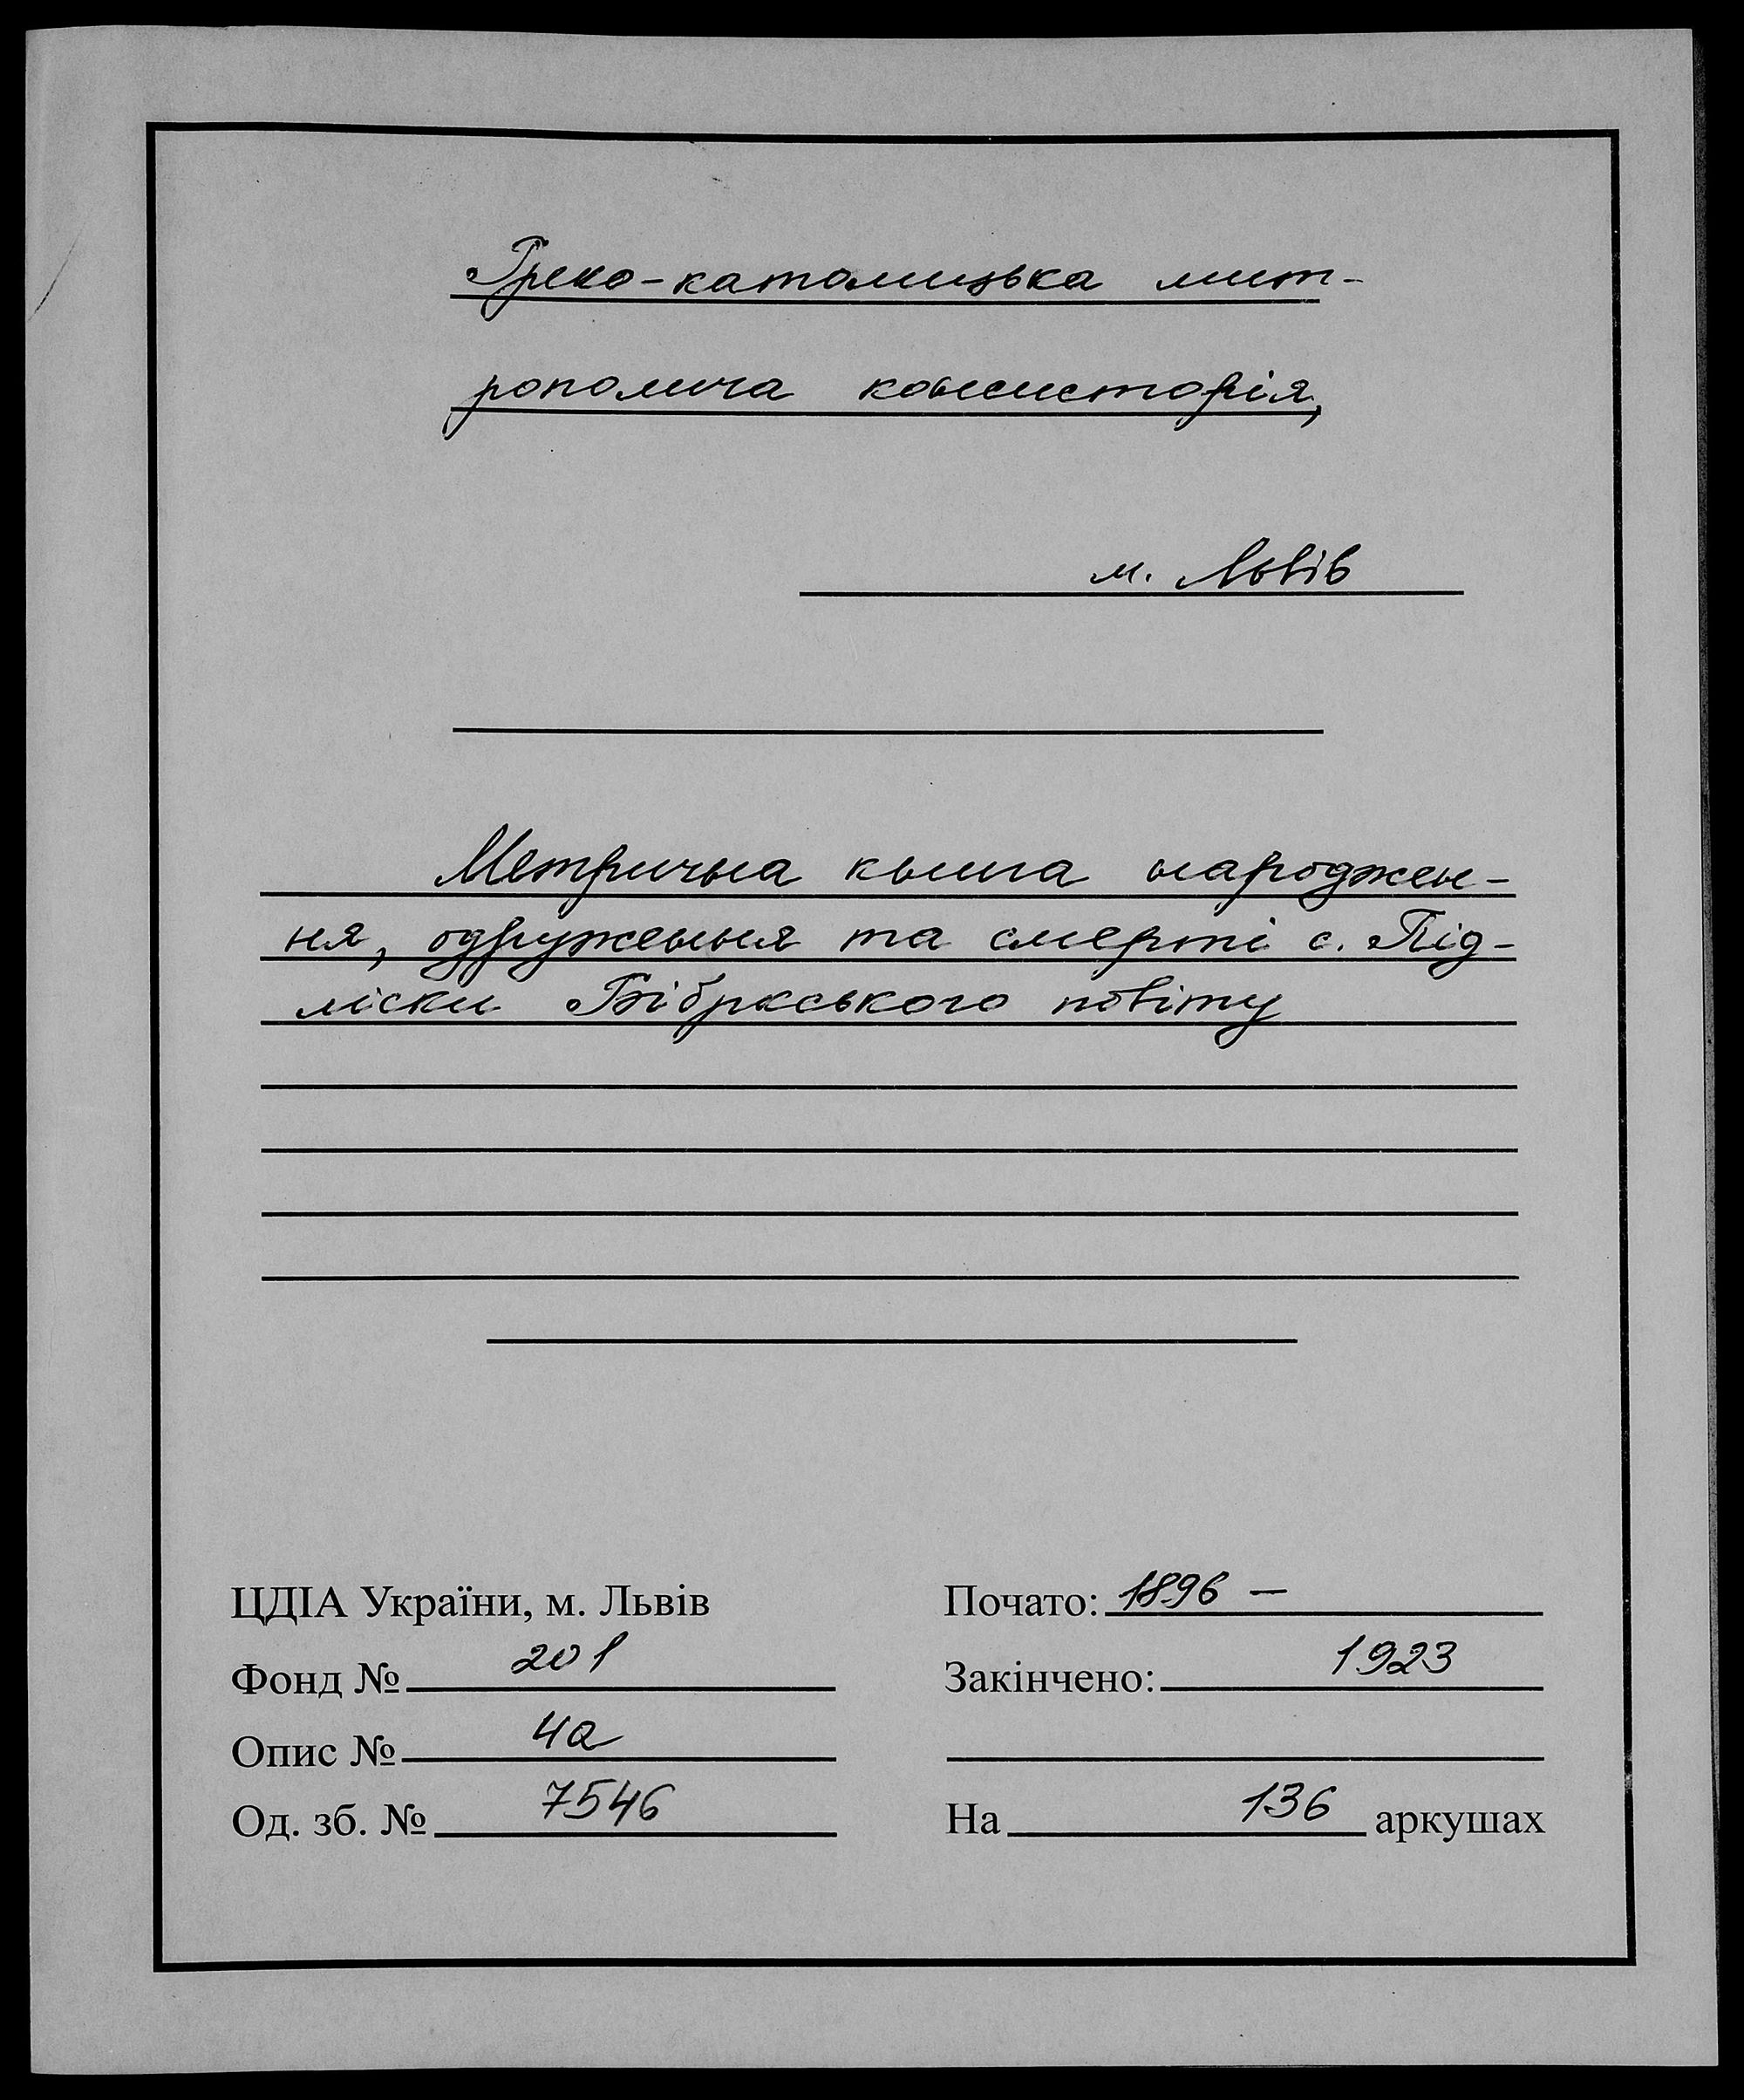 Греко-католицька мит-
рополича консисторія,
м. Львів
Метрична книга народжен-
ня, одруження та смерті с. Під-
ліски Бібркського повіту
ЦДІА України, м. Львів
Почато: 1896 —
Фонд № 201
Закінчено: 1923
Опис № 4а
Од. зб. № 7546
На 136 аркушах